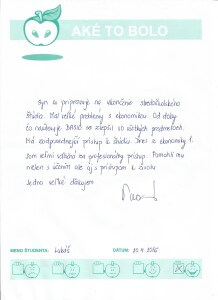 AKÉ TO BOLO
Syn sa pripravuje na ukončenie stredoškolského
štúdia. Mal veľké problémy s ekonomikou. Od doby
čo navštevuje BASIC sa zlepšil vo všetkých predmetoch.
Má zodpovednejší prístup k štúdiu. Dnes má z ekonomiky 1.
Som veľmi vďačná za profesionálny prístup. Pomohli mu
nielen s učením ale aj s prístupom k životu
Jedno veľké ďakujem.
MENO ŠTUDENTA: Lukáš
DÁTUM: